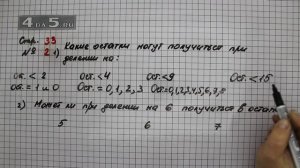 4DA5.RU
Стр. 33
№ 2 1) Какие остатки могут получиться при
делении на:
ост. < 2 ост. < 4 ост. < 9 Ост. < 15
ост. = 1 и 0 Ост. = 0, 1, 2, 3 Ост = 0,1,2,3,4,5,6,7,8
2) Может ли при делении на 6 получиться в остат
5 6 7